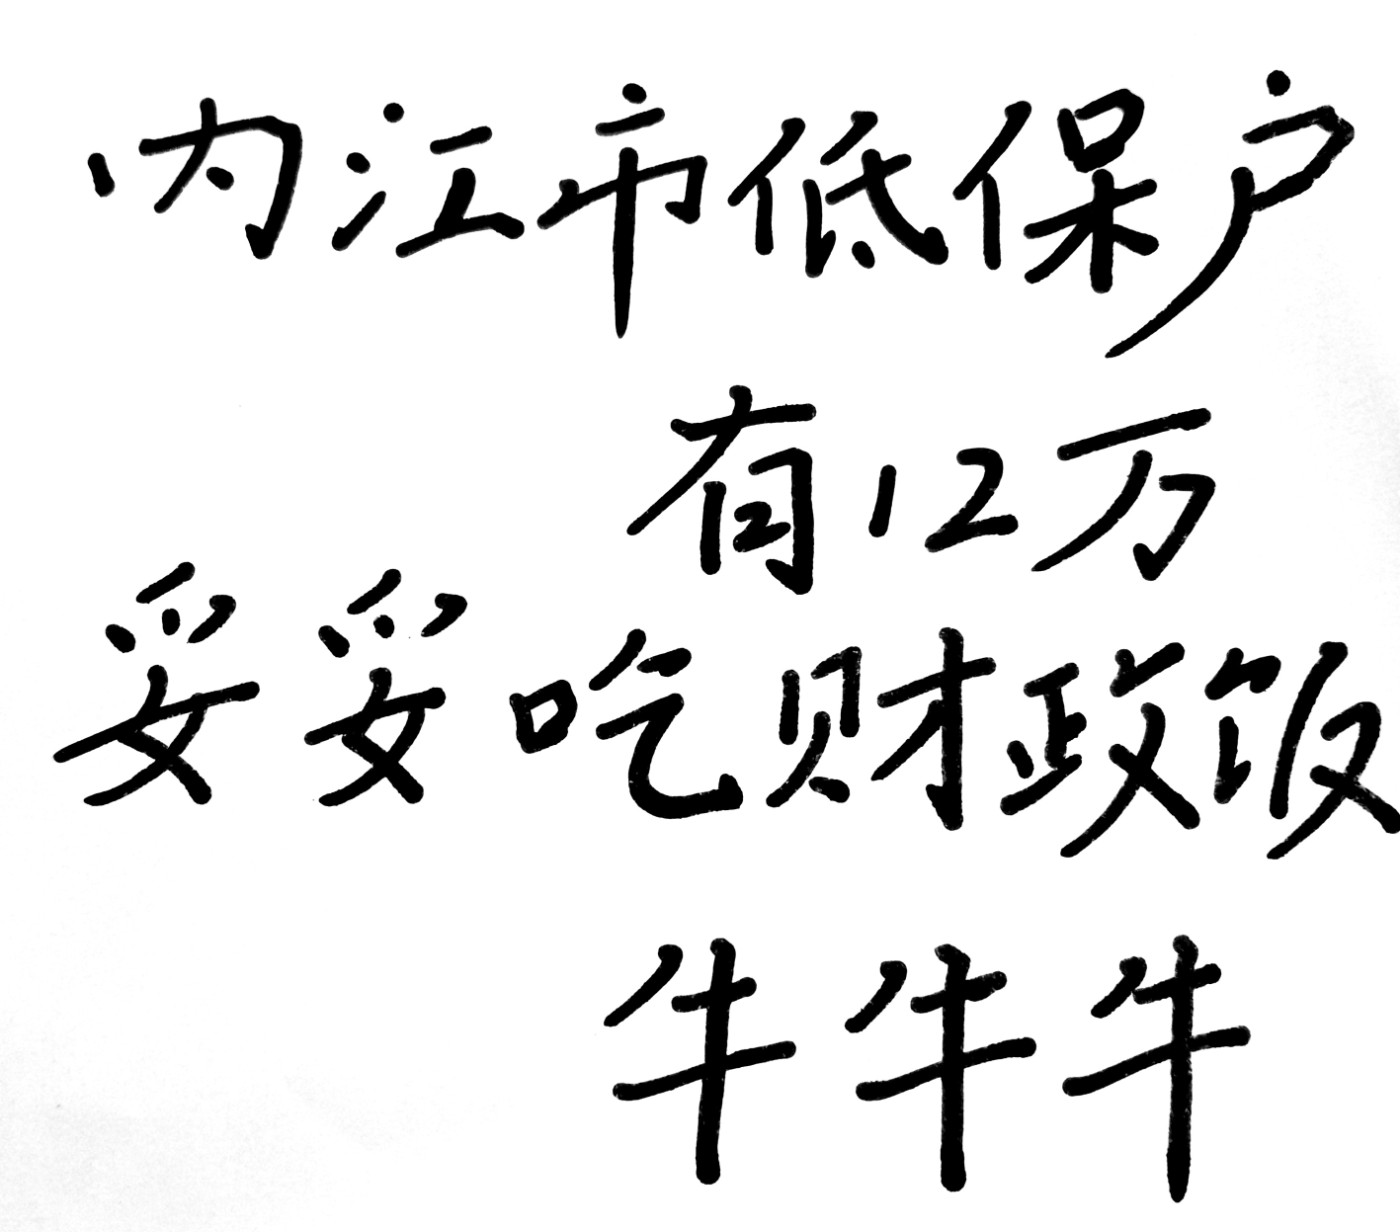 内江市低保户
有12万
妥妥吃财政饭
牛牛牛